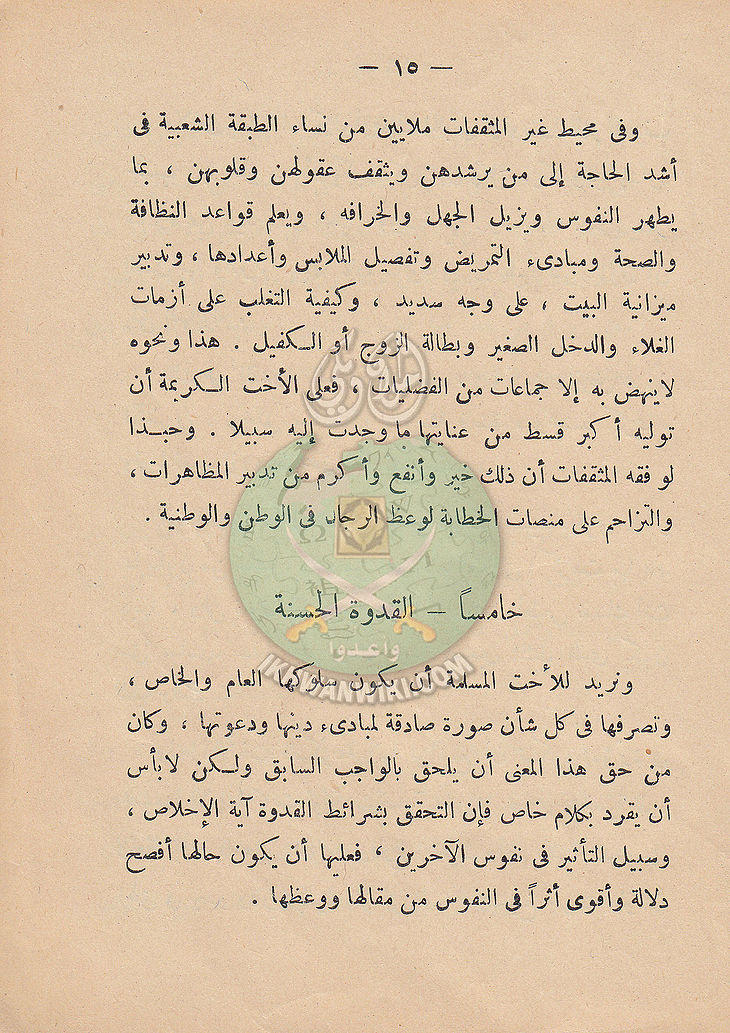 — ١٥ —
وفى محيط غير المثقفات ملايين من نساء الطبقة الشعبية فى
أشد الحاجة إلى من يرشدهن ويثقف عقولهن وقلوبهن ، بما
يطهر النفوس ويزيل الجهل والخرافه ، ويعلم قواعد النظافة
والصحة ومبادىء التمريض وتفصيل الملابس وأعدادها ، وتدبير
ميزانية البيت ، على وجه سديد ، وكيفية التغلب على أزمات
الغلاء والدخل الصغير وبطالة الزوج أو الكفيل . هذا ونحوه
لاينهض به إلا جماعات من الفضليات ، فعلى الأخت الكريمة أن
توليه أكبر قسط من عنايتها ما وجدت إليه سبيلا . وحبذا
لو فقه المثقفات أن ذلك خير وأنفع وأكرم من تدبير المظاهرات ،
والتزاحم على منصات الخطابة لوعظ الرجال فى الوطن والوطنية .
خامساً – القدوة الحسنة
ونريد للأخت المسلمة أن يكون سلوكها العام والخاص ،
وتصرفها فى كل شأن صورة صادقة لمبادىء دينها ودعوتها ، وكان
من حق هذا المعنى أن يلحق بالواجب السابق ولكن لابأس
أن يقرد بكلام خاص فإن التحقق بشرائط القدوة آية الإخلاص ،
وسبيل التأثير فى نفوس الآخرين ، فعليها أن يكون حالها أفصح
دلالة وأقوى أثراً فى النفوس من مقالها ووعظها .
وأعدوا
IKHWANWIKI.COM